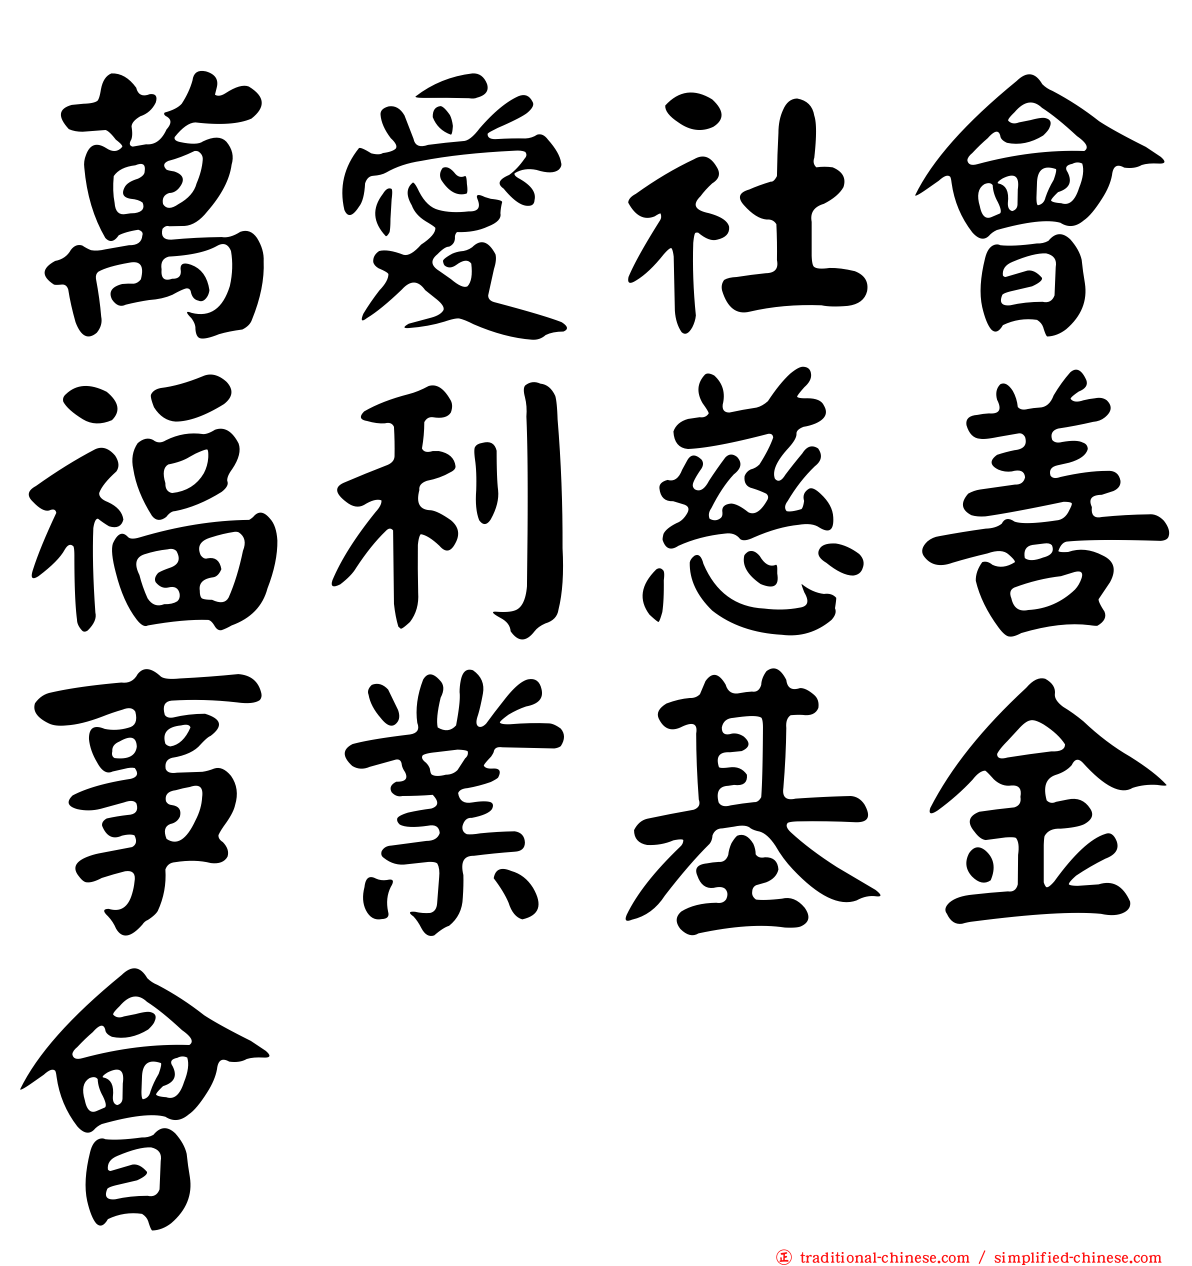 萬愛社會
福利慈善
事業基金
會
㊣ traditional-chinese.com / simplified-chinese.com